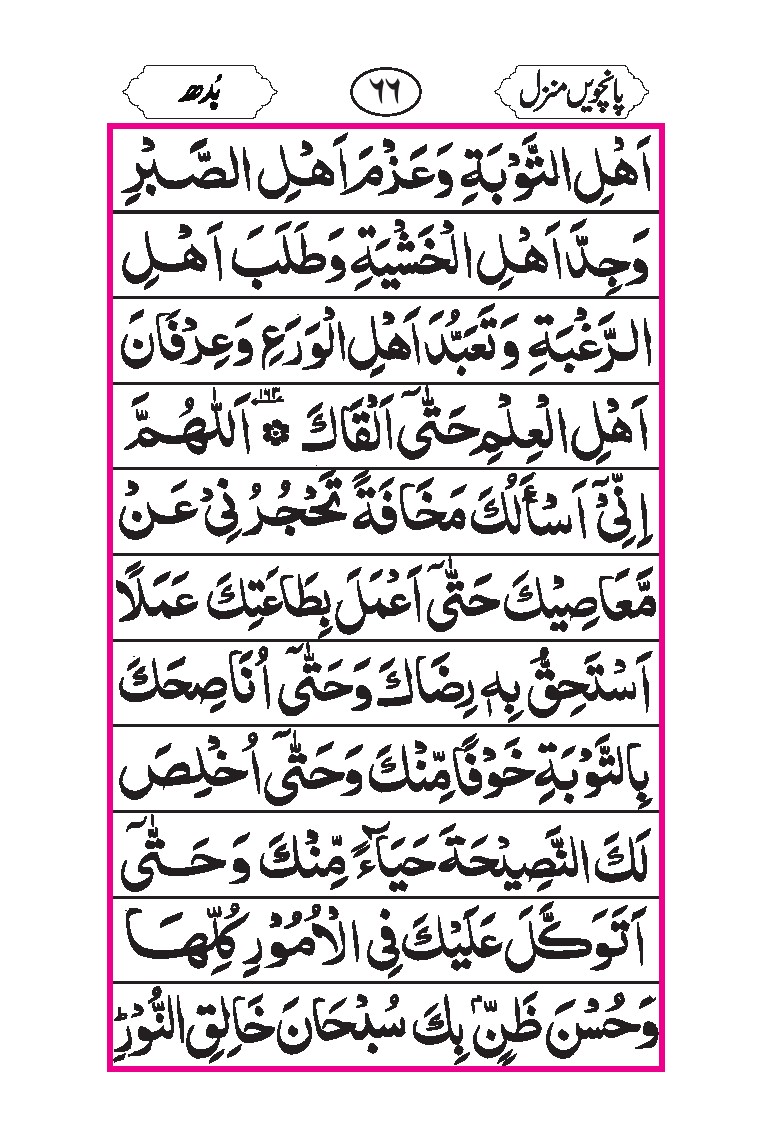 پانچویں منزل ٦٦ بُدھ
اَهْلِ التَّوْبَةِ وَعَزْمَ اَهْلِ الصَّبْرِ
وَجِدَّ اَهْلِ الْخَشْيَةِ وَطَلَبَ اَهْلِ
الرَّغْبَةِ وَتَعَبُّدَ اَهْلِ الْوَرَعِ وَعِرْفَانَ
اَهْلِ الْعِلْمِ حَتّٰىٓ اَلْقَاكَ ۞ اَللّٰهُمَّ
اِنِّىْٓ اَسْاَلُكَ مَخَافَةً تَحْجُرُنِىْ عَنْ
مَّعَاصِيْكَ حَتّٰىٓ اَعْمَلَ بِطَاعَتِكَ عَمَلًا
اَسْتَحِقُّ بِهٖ رِضَاكَ وَحَتّٰىٓ اُنَاصِحَكَ
بِالتَّوْبَةِ خَوْفًا مِّنْكَ وَحَتّٰىٓ اُخْلِصَ
لَكَ النَّصِيْحَةَ حَيَآءً مِّنْكَ وَحَتّٰىٓ
اَتَوَكَّلَ عَلَيْكَ فِى الْاُمُوْرِ كُلِّهَا
وَحُسْنَ ظَنٍّۢ بِكَ سُبْحَانَ خَالِقِ النُّوْرِؕ